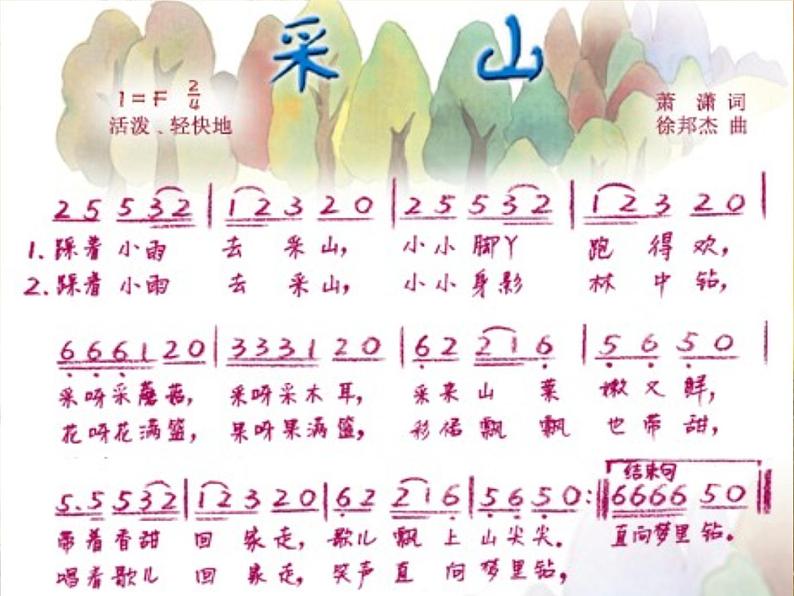 采 山
1=F 2/4
活泼、轻快地
萧 潇 词
徐邦杰 曲
2 5 5 3 2 | 1 2 3 2 0 | 2 5 5 3 2 | 1 2 3 2 0 |
1. 踩着 小雨 去 采山， 小小 脚丫 跑 得 欢，
2. 踩着 小雨 去 采山， 小小 身影 林 中 钻，
6 6 6 1 2 0 | 3 3 3 1 2 0 | 6 2 2 1 6 | 5 6 5 0 |
采呀采蘑菇， 采呀采木耳， 采来 山 菜 嫩 又 鲜，
花呀花满篮， 果呀果满篮， 彩裙 飘 飘 也 带 甜，
5. 5 5 3 2 | 1 2 3 2 0 | 6 2 2 1 6 | 5 6 5 0 :‖ 结束句 6 6 6 6 5 0 ‖
带着香甜 回 家走， 歌儿 飘 上 山尖尖。 直向梦里钻。
唱着歌儿 回 家走， 笑声 直 向 梦里钻，